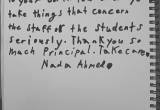 take things that concern
the staff of the students
seriously. Thank you so
much Principal. Take care,
Nada Ahmed